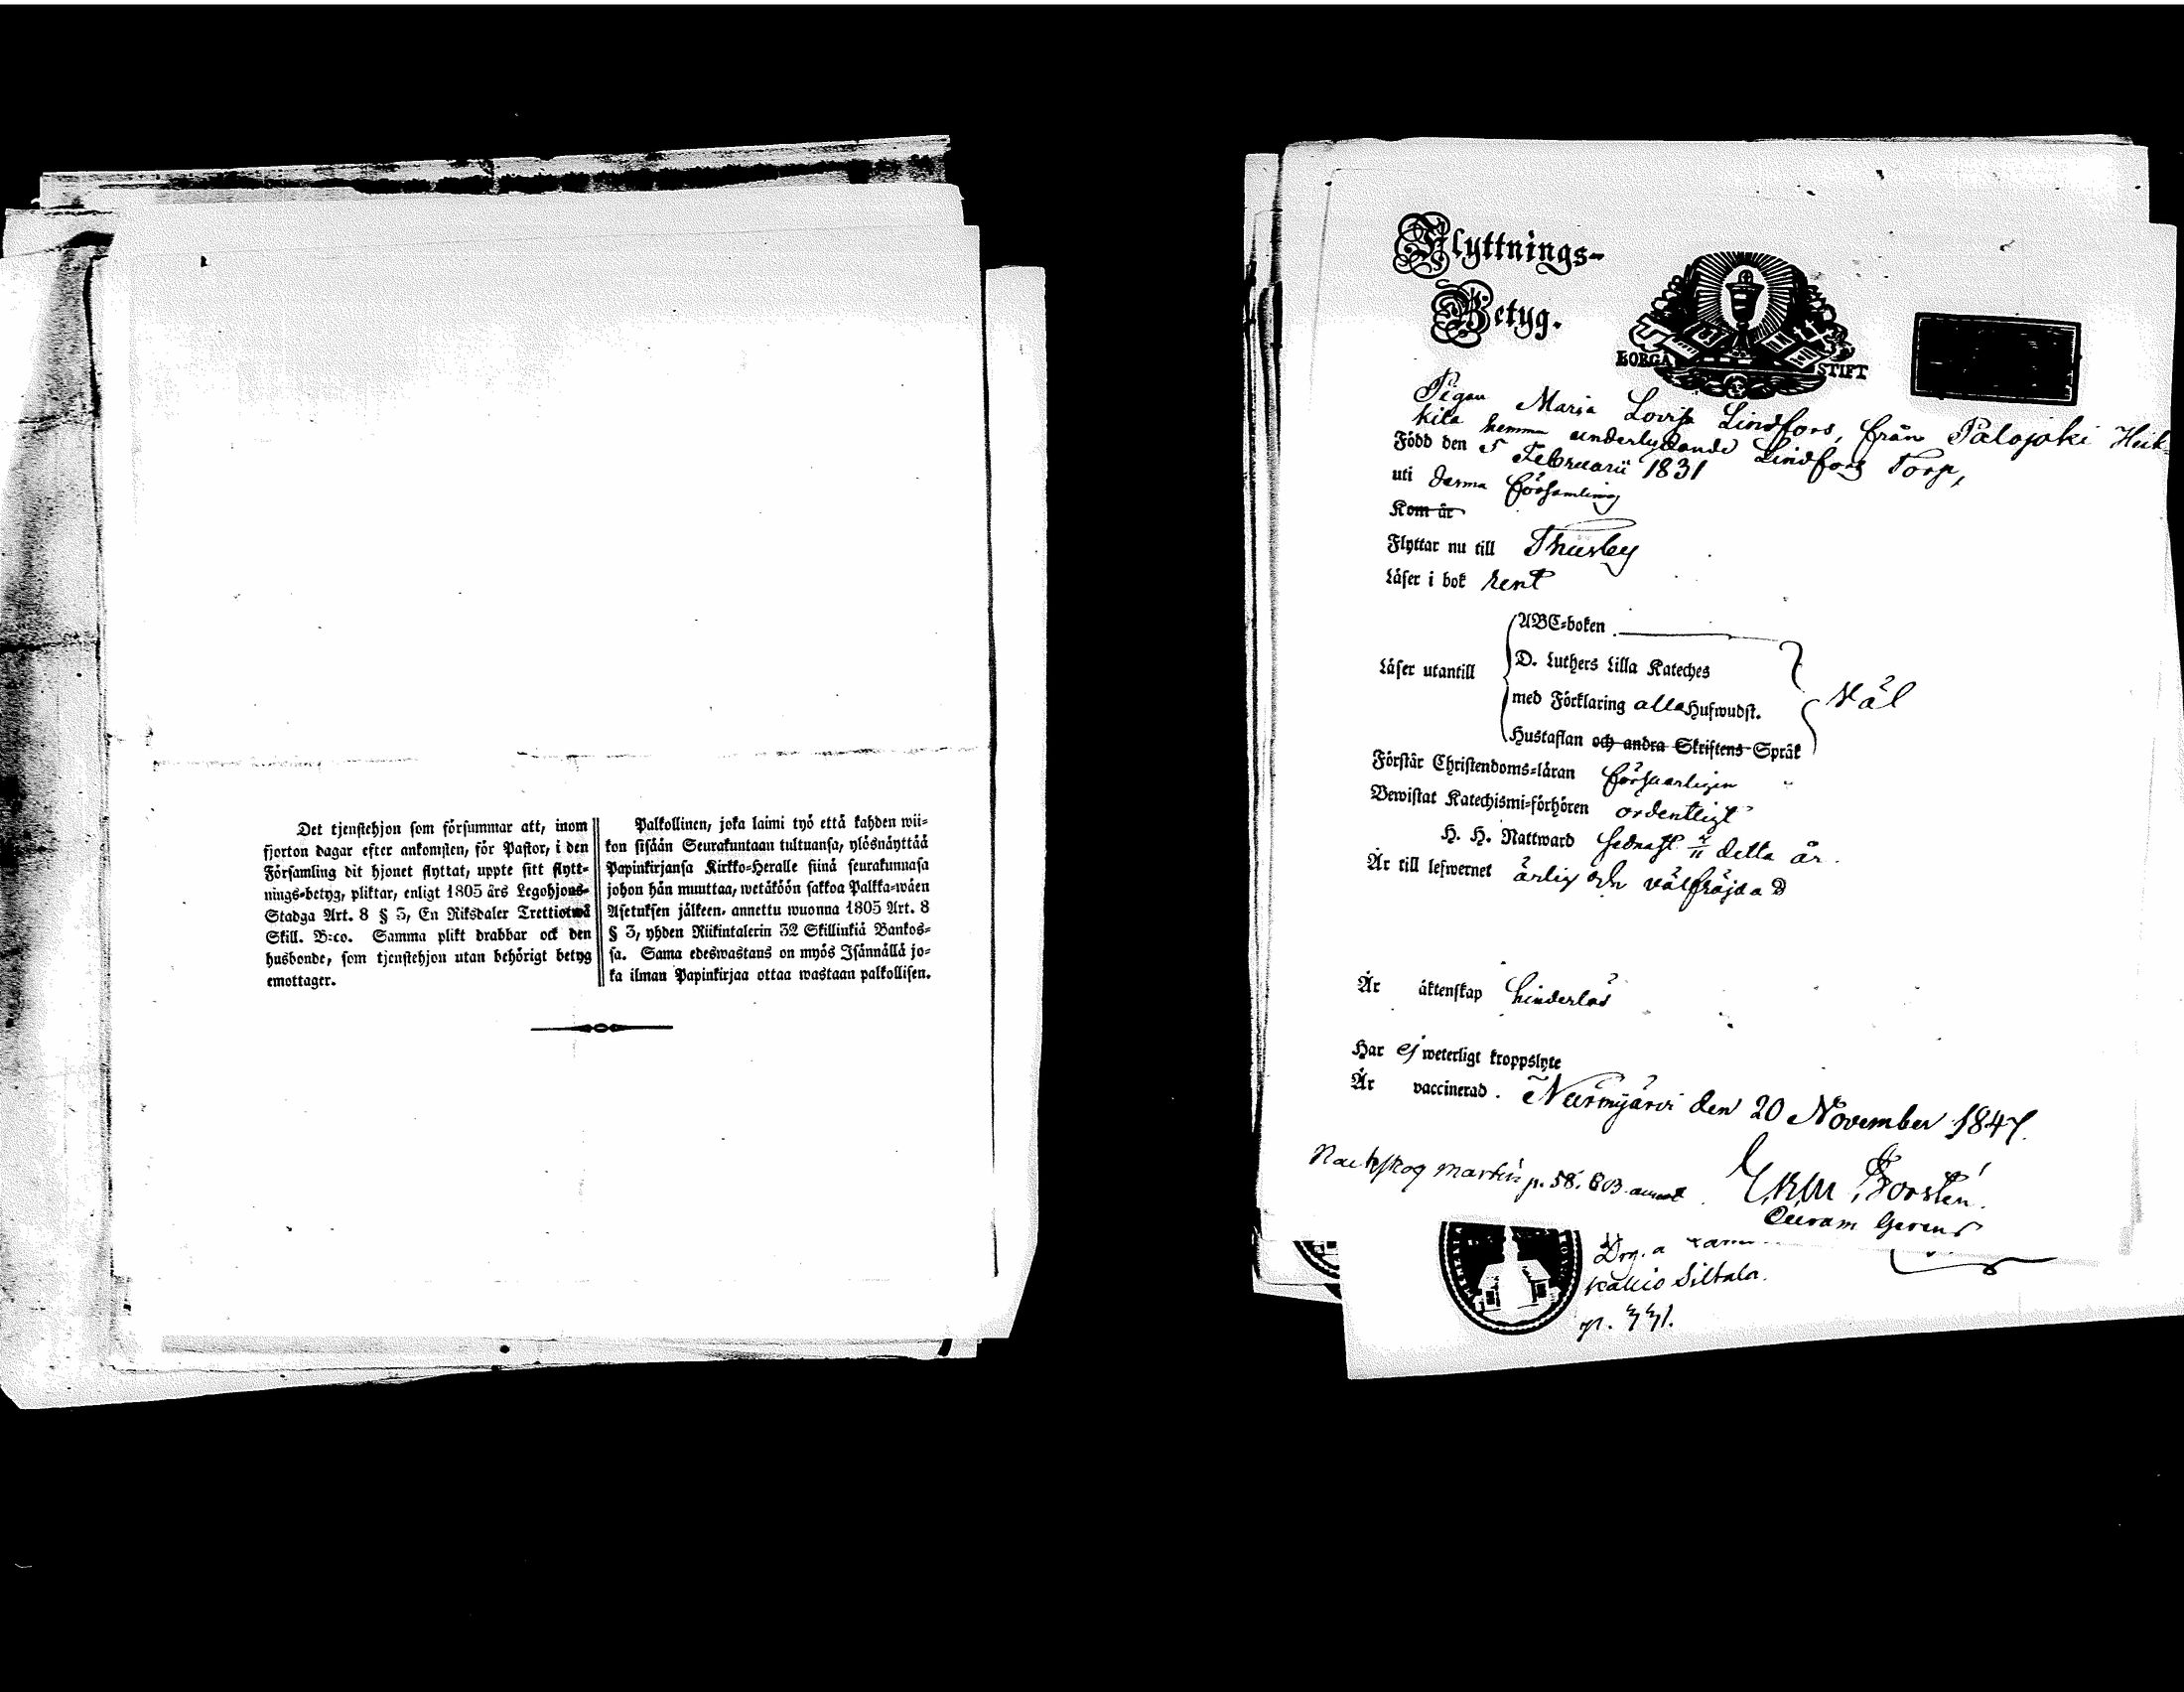 Det tjenstehjon som försummar att, inom
fjorton dagar efter ankomsten, för Pastor, i den
Församling dit hjonet flyttat, uppte sitt flytt-
nings-betyg, pliktar, enligt 1805 års Legohjons-
Stadga Art. 8 § 3, En Riksdaler Trettiotwå
Skill. B:co. Samma plikt drabbar ock den
husbonde, som tjenstehjon utan behörigt betyg
emottager.
Palkollinen, joka laimi työ että kahden wii-
kon sisään Seurakuntaan tultuansa, ylösnäyttää
Papinkirjansa Kirkko-Heralle siinä seurakunnasa
johon hän muuttaa, wetäköön sakkoa Palkka-wäen
Asetuksen jälkeen, annettu wuonna 1805 Art. 8
§ 3, yhden Riikintalerin 32 Skillinkiä Bankos-
sa. Sama edeswastaus on myös Isännällä jo-
ka ilman Papinkirjaa ottaa wastaan palkollisen.
Flyttnings-
Betyg.
BORGÅ STIFT
Pigan Maria Lovisa Lindfors, från Palojoki Heik-
kilä hemman underlydande Lindfors Torp,
Född den 5 Februarii 1831
uti denna församling
Kom år
Flyttar nu till Thusby
Läser i bok rent
ABC-boken
Läser utantill
D. Luthers Lilla Kateches
med Förklaring alla Hufwudst.
Hustaflan och andra Skriftens Språk
Väl
Förstår Christendoms-läran försvarligen
Bewistat Katechismi-förhören ordentligt
H. H. Nattward sednast detta år.
Är till lefwernet ärlig och välfräjdad
Är äktenskap hinderlös
Har ej weterligt kroppslyte
Är vaccinerad. Nurmijärvi den 20 November 1847.
p. 58.
Borstén.
Curam Gerens
Kallio Siltala.